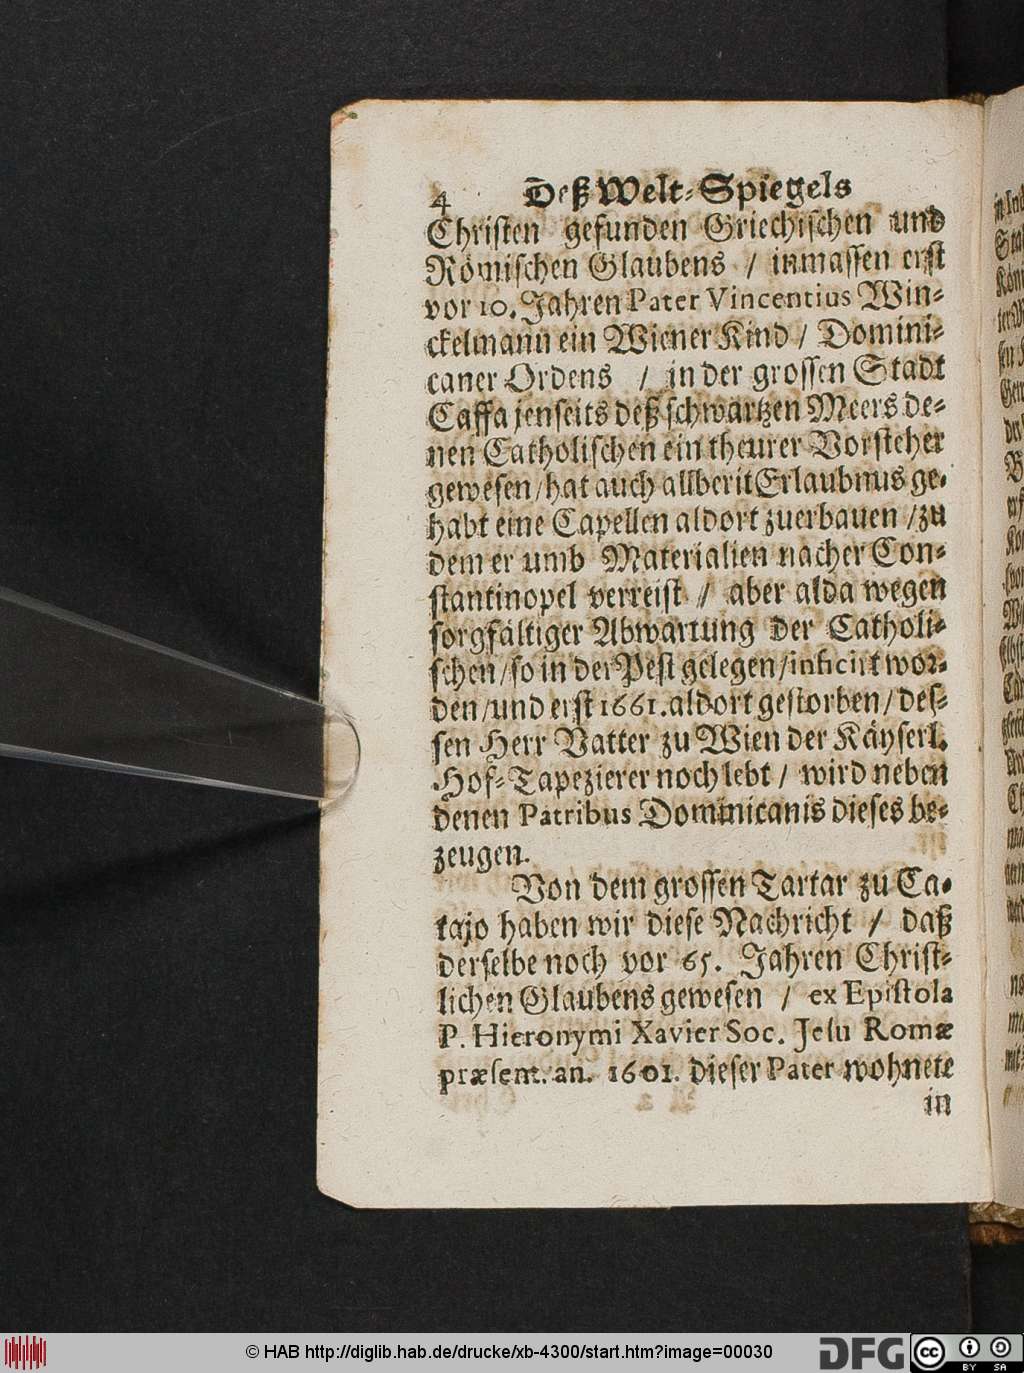 4 Deß Welt-Spiegels
Christen gefunden Griechischen und
Römischen Glaubens / inmassen erst
vor 10. Jahren Pater Vincentius Win-
ckelmann ein Wiener Kind / Domini-
caner Ordens / in der grossen Stadt
Caffa jenseits deß schwartzen Meers de-
nen Catholischen ein theurer Vorsteher
gewesen / hat auch allberit Erlaubnus ge-
habt eine Capellen aldort zuerbauen / zu
dem er umb Materialien nacher Con-
stantinopel verreist / aber alda wegen
sorgfältiger Abwartung der Catholi-
schen / so in der Pest gelegen / inficirt wor-
den / und erst 1661. aldort gestorben / des-
sen Herr Vatter zu Wien der Käyserl.
Hof-Tapezierer noch lebt / wird neben
denen Patribus Dominicanis dieses be-
zeugen.
Von dem grossen Tartar zu Ca-
tajo haben wir diese Nachricht / daß
derselbe noch vor 65. Jahren Christ-
lichen Glaubens gewesen / ex Epistola
P. Hieronymi Xavier Soc. Jesu Romæ
præsent. an. 1601. dieser Pater wohnete
in
© HAB http://diglib.hab.de/drucke/xb-4300/start.htm?image=00030
DFG
cc BY SA